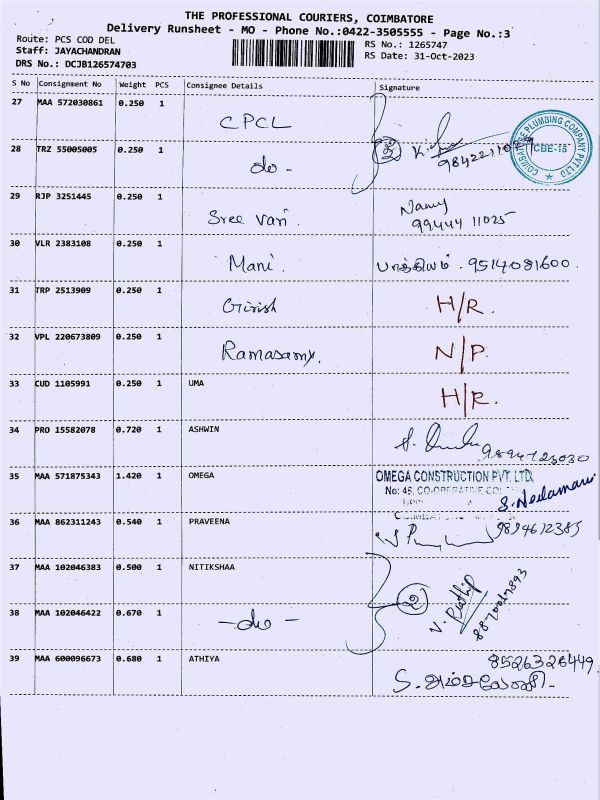 THE PROFESSIONAL COURIERS, COIMBATORE
Delivery Runsheet - MO - Phone No.:0422-3505555 - Page No.:3
Route: PCS COD DEL
Staff: JAYACHANDRAN
DRS No.: DCJB126574703
RS No.: 1265747
RS Date: 31-Oct-2023
S No Consignment No Weight PCS Consignee Details Signature
27 MAA 572030861 0.250 1 CPCL
28 TRZ 55005005 0.250 1 do-
COIMBATORE PLUMBING COMPANY PVT LTD
CBE-15
29 RJP 3251445 0.250 1 Sree Vari. Nancy
99444 11025
30 VLR 2383108 0.250 1 Mani. பாக்கியம். 9514081600.
31 TRP 2513909 0.250 1 Girish H/R.
32 VPL 220673809 0.250 1 Ramasamy. N/P.
33 CUD 1105991 0.250 1 UMA H/R.
34 PRO 15582078 0.720 1 ASHWIN
9894723030
35 MAA 571875343 1.420 1 OMEGA OMEGA CONSTRUCTION PVT. LTD.
No: 45, CO-OPERATIVE
S. Neelamani
36 MAA 862311243 0.540 1 PRAVEENA 9894612385
37 MAA 102046383 0.500 1 NITIKSHAA
2
38 MAA 102046422 0.670 1 -do-
39 MAA 600096673 0.680 1 ATHIYA 8526326449.